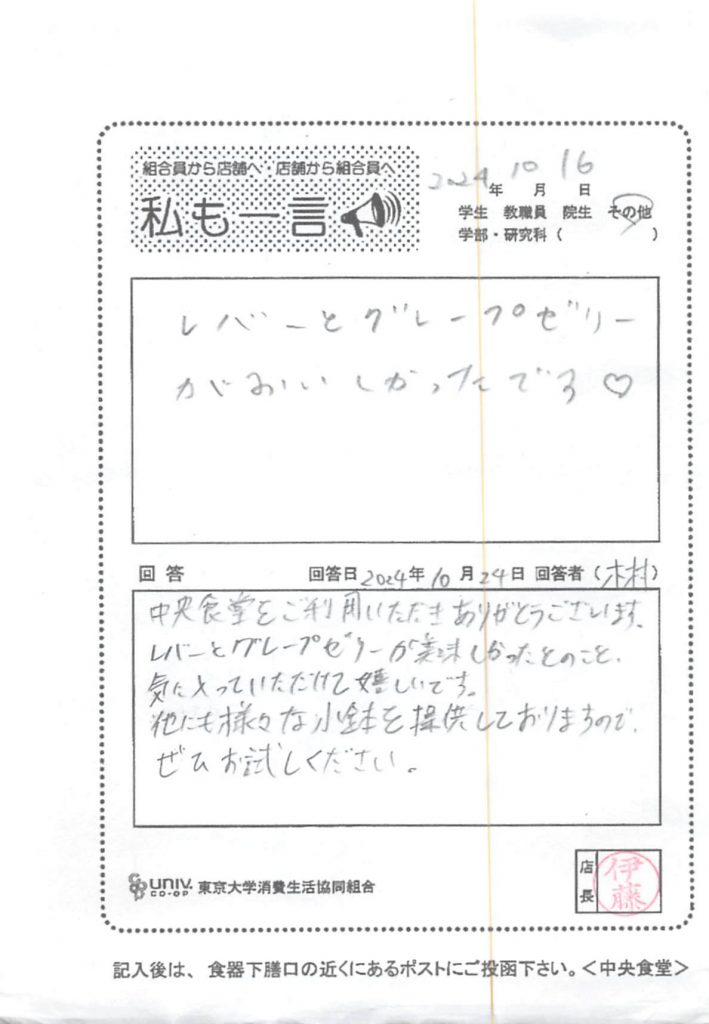 組合員から店舗へ・店舗から組合員へ
私も一言
2024年 10月 16日
学生 教職員 院生 その他
学部・研究科（ ）
レバーとグレープゼリー
がおいしかったです♡
回答 回答日 2024年 10月 24日 回答者（木村）
中央食堂をご利用いただきありがとうございます。
レバーとグレープゼリーが美味しかったとのこと、
気に入っていただけて嬉しいです。
他にも様々な小鉢を提供しておりますので、
ぜひお試しください。
UNIV. CO-OP 東京大学消費生活協同組合
店長 伊藤
記入後は、食器下膳口の近くにあるポストにご投函下さい。＜中央食堂＞